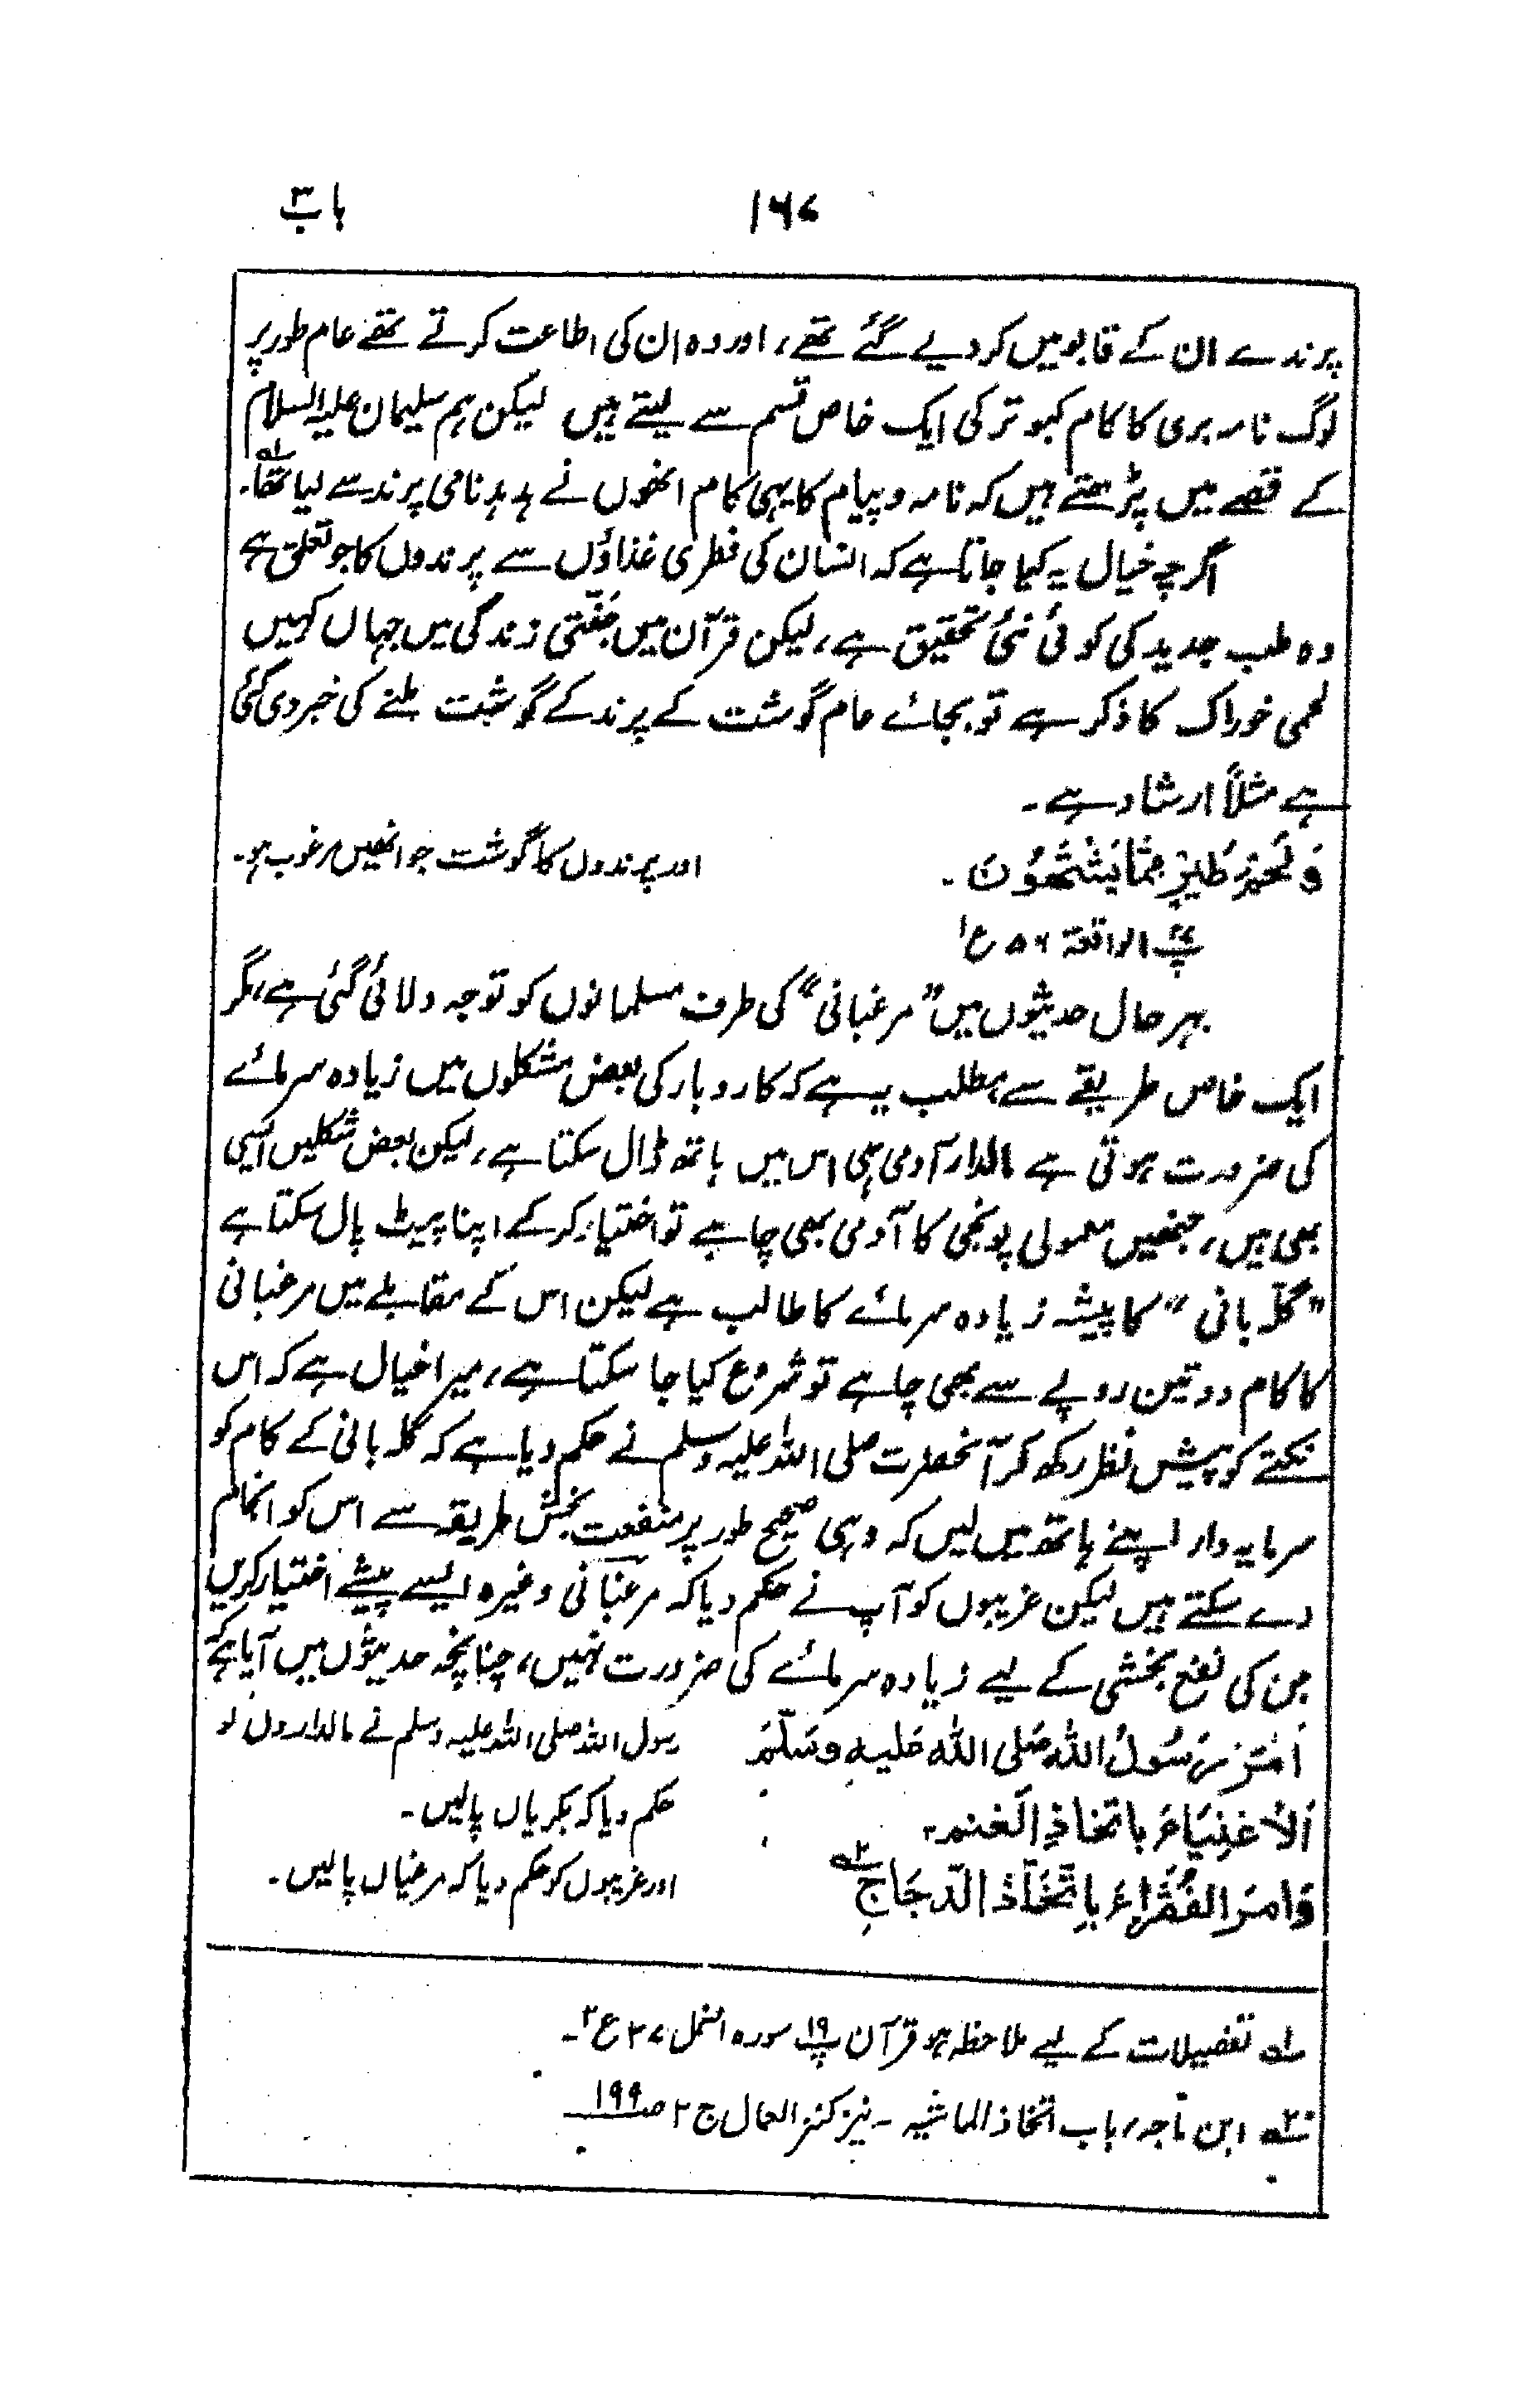 باب ۳
۱۶۷
پرندے ان کے قابو میں کر دیے گئے تھے، اور وہ ان کی اطاعت کرتے تھے عام طور پر
لوگ نامہ بری کا کام کبوتر کی ایک خاص قسم سے لیتے ہیں لیکن ہم سلیمان علیہ السلام
کے قصے میں پڑھتے ہیں کہ نامہ و پیام کا یہی کام انھوں نے ہدہد نامی پرند سے لیا تھا۔ ۱ھ
اگرچہ خیال یہ کیا جاتا ہے کہ انسان کی فطری غذاؤں سے پرندوں کا جو تعلق ہے
وہ طب جدید کی کوئی نئی تحقیق ہے، لیکن قرآن میں جنّتی زندگی میں جہاں کہیں
لحمی خوراک کا ذکر ہے تو بجائے عام گوشت کے پرند کے گوشت ملنے کی خبر دی گئی
ہے مثلاً ارشاد ہے۔
وَلَحْمِ طَیْرٍ مِّمَّا یَشْتَھُوْنَ۔ اور پرندوں کا گوشت جو انھیں مرغوب ہو۔
پ۲۷ الواقعۃ ۵۶ ع۱
بہر حال حدیثوں میں ”مرغبانی“ کی طرف مسلمانوں کو توجہ دلائی گئی ہے، مگر
ایک خاص طریقے سے، مطلب یہ ہے کہ کاروبار کی بعض شکلوں میں زیادہ سرمائے
کی ضرورت ہوتی ہے مالدار آدمی ہی اس میں ہاتھ ڈال سکتا ہے، لیکن بعض شکلیں ایسی
بھی ہیں، جنھیں معمولی پونجی کا آدمی بھی چاہے تو اختیار کر کے اپنا پیٹ پال سکتا ہے
”گلّہ بانی“ کا پیشہ زیادہ سرمائے کا طالب ہے لیکن اس کے مقابلے میں مرغبانی
کا کام دو تین روپے سے بھی چاہے تو شروع کیا جا سکتا ہے، میرا خیال ہے کہ اس
نکتے کو پیش نظر رکھ کر آنحضرت صلی اللہ علیہ وسلم نے حکم دیا ہے کہ گلہ بانی کے کام کو
سرمایہ دار اپنے ہاتھ میں لیں کہ وہی صحیح طور پر منفعت بخش طریقہ سے اس کو انجام
دے سکتے ہیں لیکن غریبوں کو آپ نے حکم دیا کہ مرغبانی وغیرہ ایسے پیشے اختیار کریں
جن کی نفع بخشی کے لیے زیادہ سرمائے کی ضرورت نہیں، چنانچہ حدیثوں میں آیا ہے کہ
اَمَرَ رَسُولُ اللہِ صَلی اللہ عَلیہِ وسَلَّمَ رسول اللہ صلی اللہ علیہ وسلم نے مالداروں کو
اَلْاَغْنِیَاءَ بِاتخاذِ الْغنم۔ حکم دیا کہ بکریاں پالیں۔
وَامَرَ الفُقَرَاءَ بِاِتَّخَاذِ الدَّجَاجِ ۲ھ اور غریبوں کو حکم دیا کہ مرغیاں پالیں۔
۱ھ تفصیلات کے لیے ملاحظہ ہو قرآن پ۱۹ سورہ النمل ۲۷ ع۲۔
۲ھ ابن ماجہ، باب اتخاذ الماشیہ ۔ نیز کنز العمال ج ۲ ص۱۹۹